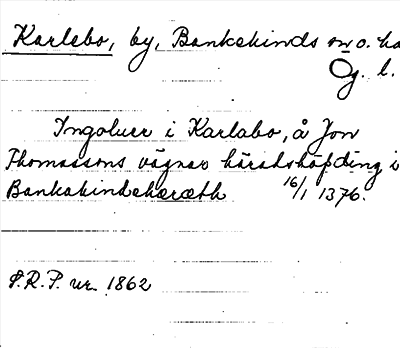 Karlebo, by, Bankekinds sn o. hd
Ög. l.
Ingoluer i Karlabo, å Jon
Thomassons vägnar häradshöfding i
Bankakindeheræth 16/1 1376.
S.R.P. nr. 1862